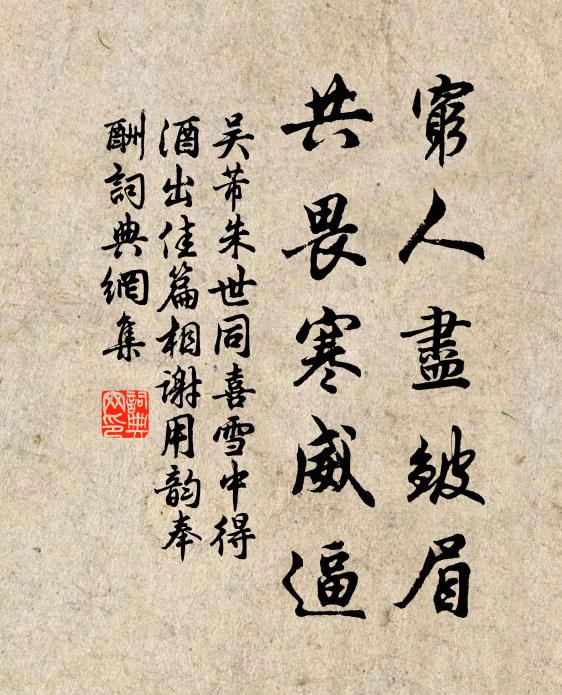 窮人盡皴眉
共畏寒威逼
吴芾朱世同喜雪中得
酒出佳篇相谢用韵奉
酬詞典網集
詞典
网印